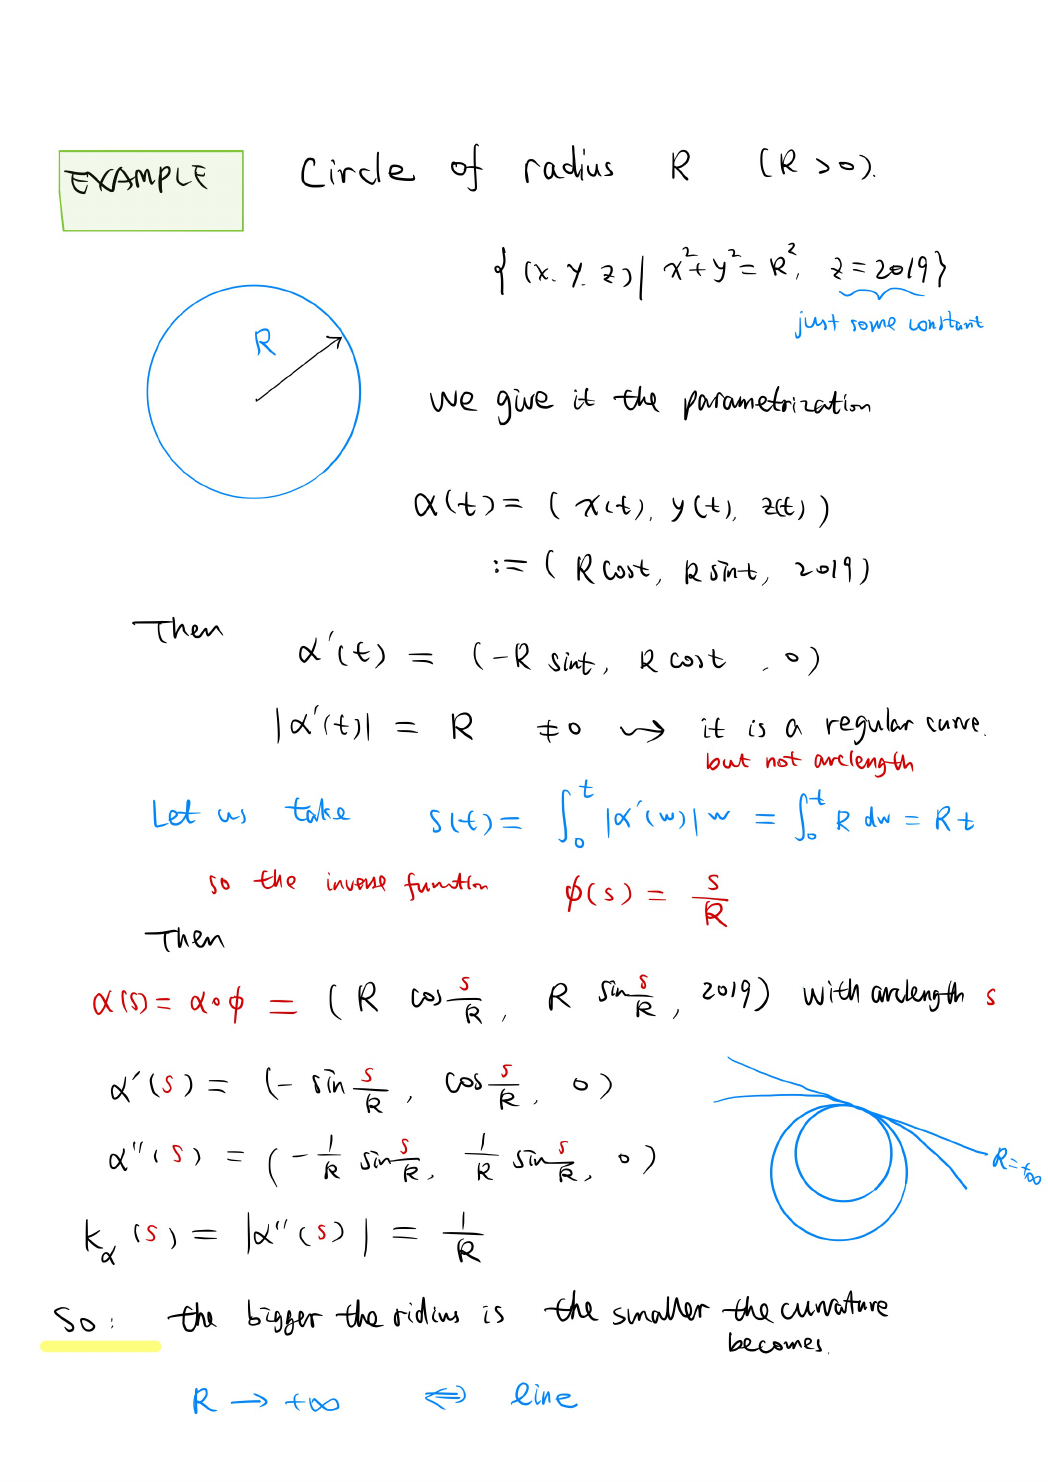 EXAMPLE Circle of radius R (R > 0).
{ (x. y. z) | x² + y² = R², z = 2019 }
just some constant
R
we give it the parametrization
α(t) = ( x(t), y(t), z(t) )
:= ( R cost, R sint, 2019 )
Then
α'(t) = (-R sint, R cost, 0)
|α'(t)| = R ≠ 0 ⇝ it is a regular curve.
but not arclength
Let us take s(t) = ∫₀ᵗ |α'(w)| w = ∫₀ᵗ R dw = R t
so the inverse function φ(s) = s/R
Then
α(s) = α∘φ = (R cos s/R, R sin s/R, 2019) with arclength s
α'(s) = (- sin s/R, cos s/R, 0)
α''(s) = (- 1/R sin s/R, 1/R sin s/R, 0)
R=+∞
k_α(s) = |α''(s)| = 1/R
So: the bigger the ridius is the smaller the curvature
becomes.
R → +∞ ⇔ line